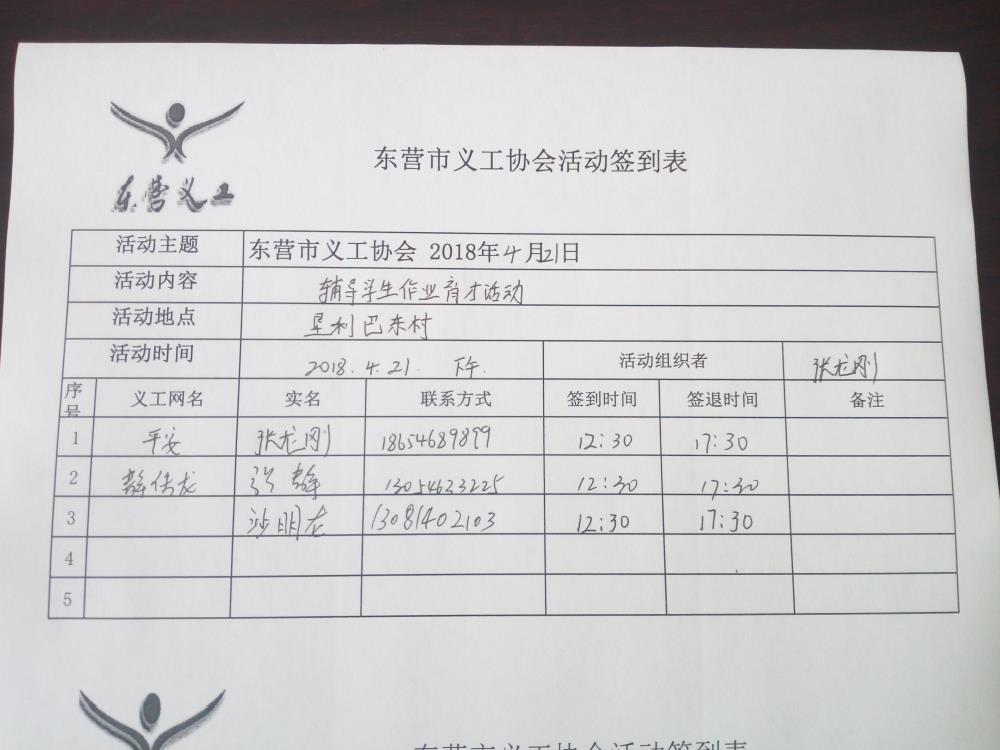 东营市义工协会活动签到表
东营义工
活动主题 东营市义工协会 2018年4月21日
活动内容 辅导学生作业育才活动
活动地点 垦利巴东村
活动时间 2018.4.21. 下午. 活动组织者 张龙刚
序号 义工网名 实名 联系方式 签到时间 签退时间 备注
1 平安 张龙刚 18654689899 12:30 17:30
2 静传龙 张静 13054633225 12:30 17:30
3 沙明龙 13081402103 12:30 17:30
4
5
东营市义工协会活动签到表